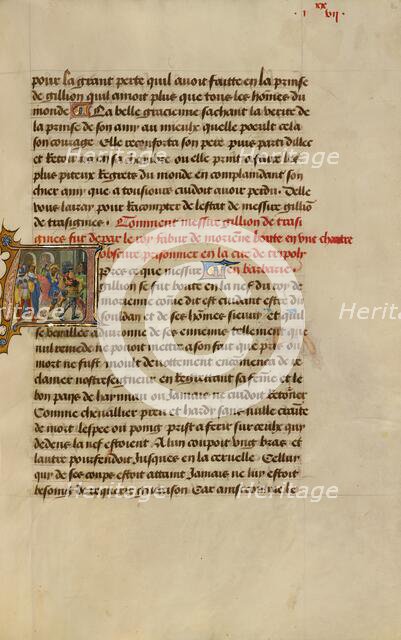 xx
i vii
pour la grant perte quil avoit faitte en la prinse
de gillion quil amoit plus que tous les hommes du
monde La belle gracienne sachant la verite de
la prinse de son amy au mieulx quelle poeult cela
son courage Elle reconforta son pere puis party dillec
et retourna en sa chambre ou elle print a faire les
plus piteux regretz du monde en complaindant son
chier amy que a tousiours cuidoit avoir perdu. Delle
vous lairay pour racompter de lestat de messire gillion
de trasignies. Comment messire gillion de trasi
gnies fut de par le roy fabur de morienne boute en une chartre
obscure prisonnier en la cite de
Apres ce que messire en barbarie.
gillion se fut boute en la nef du roy de
morienne comme dit est cuidant estre du
souldan et de ses hommes sicuin et
se trouva a de ses ennemis tellement que
nul remede ne povoit mettre a son fait que pris ou
mort ne fust. moult devottement encommenca de re
clamer nostreseigneur en regrettant sa femme et le
bon pays de haynnau ou Jamais ne cuidoit retourner
Comme chevallier preu et hardy sans nulle crainte
de mort lespee ou poing prist a ferir sur ceulx quy
dedens la nef estoient A lun coupoit ung bras et
lautre pourfendoit Jusques en la cervelle Celluy
quy de ses coups estoit attaint Jamais ne luy estoit
besoing de requerir garison Car
Heritage
Heritage
Heritage
Heritage
Heritage
Heritage
Heritage